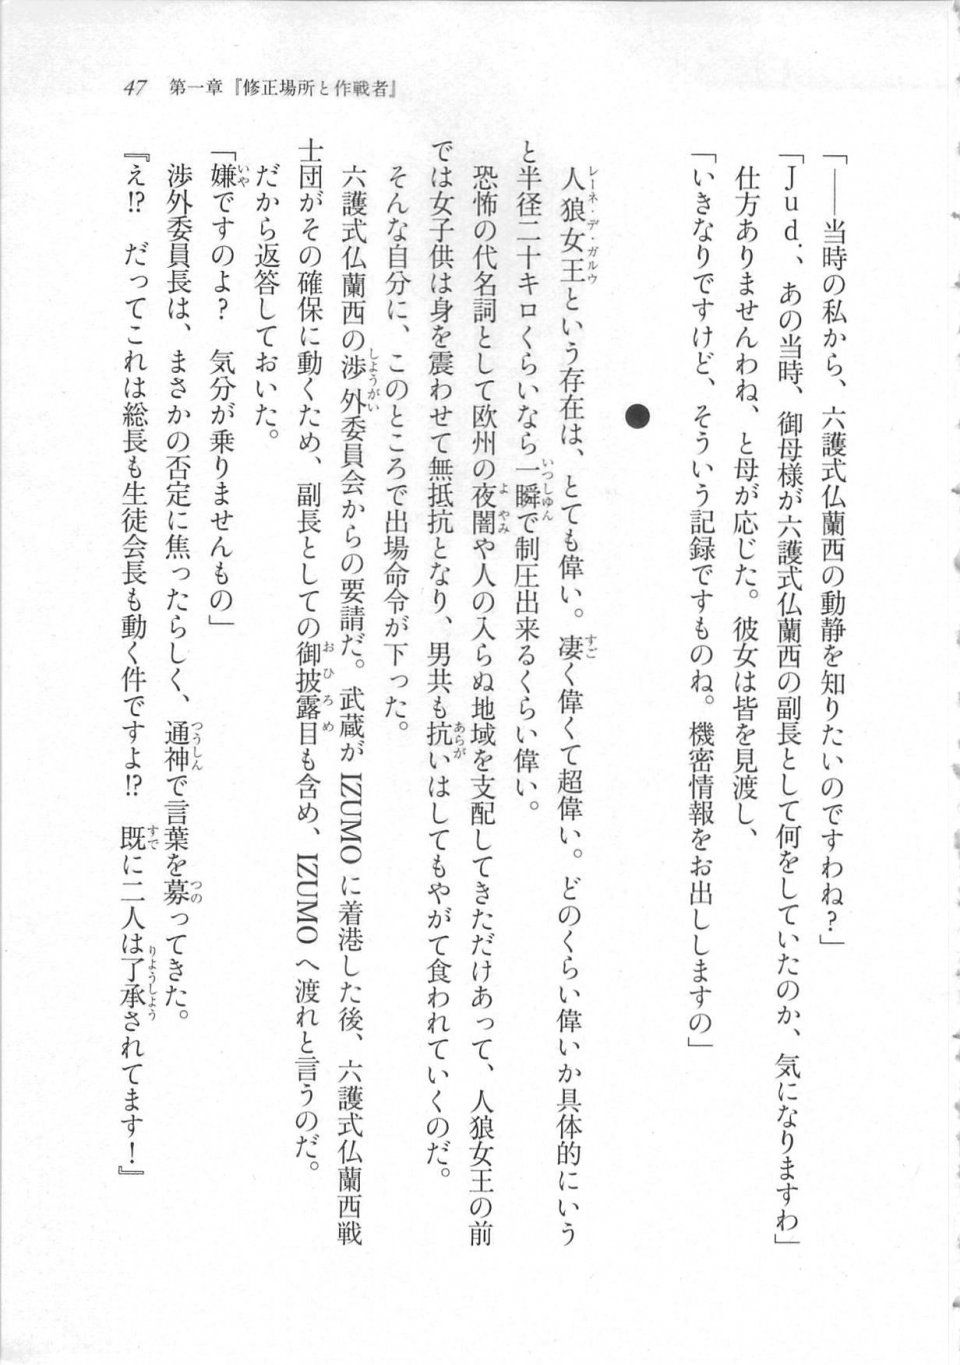 47　第一章『修正場所と作戦者』
「――当時の私から、六護式仏蘭西の動静を知りたいのですわね?」
「Jud.、あの当時、御母様が六護式仏蘭西の副長として何をしていたのか、気になりますわ」
仕方ありませんわね、と母が応じた。彼女は皆を見渡し、
「いきなりですけど、そういう記録ですものね。機密情報をお出ししますの」
●
人狼女王という存在は、とても偉い。凄く偉くて超偉い。どのくらい偉いか具体的にいう
と半径二十キロくらいなら一瞬で制圧出来るくらい偉い。
恐怖の代名詞として欧州の夜闇や人の入らぬ地域を支配してきただけあって、人狼女王の前
では女子供は身を震わせて無抵抗となり、男共も抗いはしてもやがて食われていくのだ。
そんな自分に、このところで出場命令が下った。
六護式仏蘭西の渉外委員会からの要請だ。武蔵がIZUMOに着港した後、六護式仏蘭西戦
士団がその確保に動くため、副長としての御披露目も含め、IZUMOへ渡れと言うのだ。
だから返答しておいた。
「嫌ですのよ?　気分が乗りませんもの」
渉外委員長は、まさかの否定に焦ったらしく、通神で言葉を募ってきた。
『え!?　だってこれは総長も生徒会長も動く件ですよ!?　既に二人は了承されてます!』